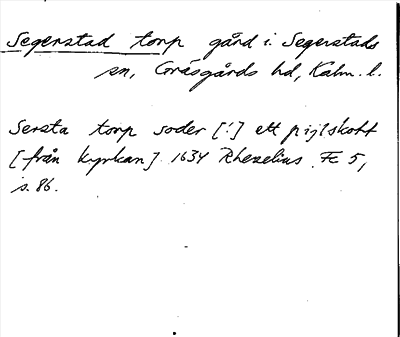 Segerstad torp gård i Segerstads
sn, Gräsgårds hd, Kalm. l.
Sersta torp soder [!] ett pijlskott
[från kyrkan] 1634 Rhezelius FE 5,
s. 86.